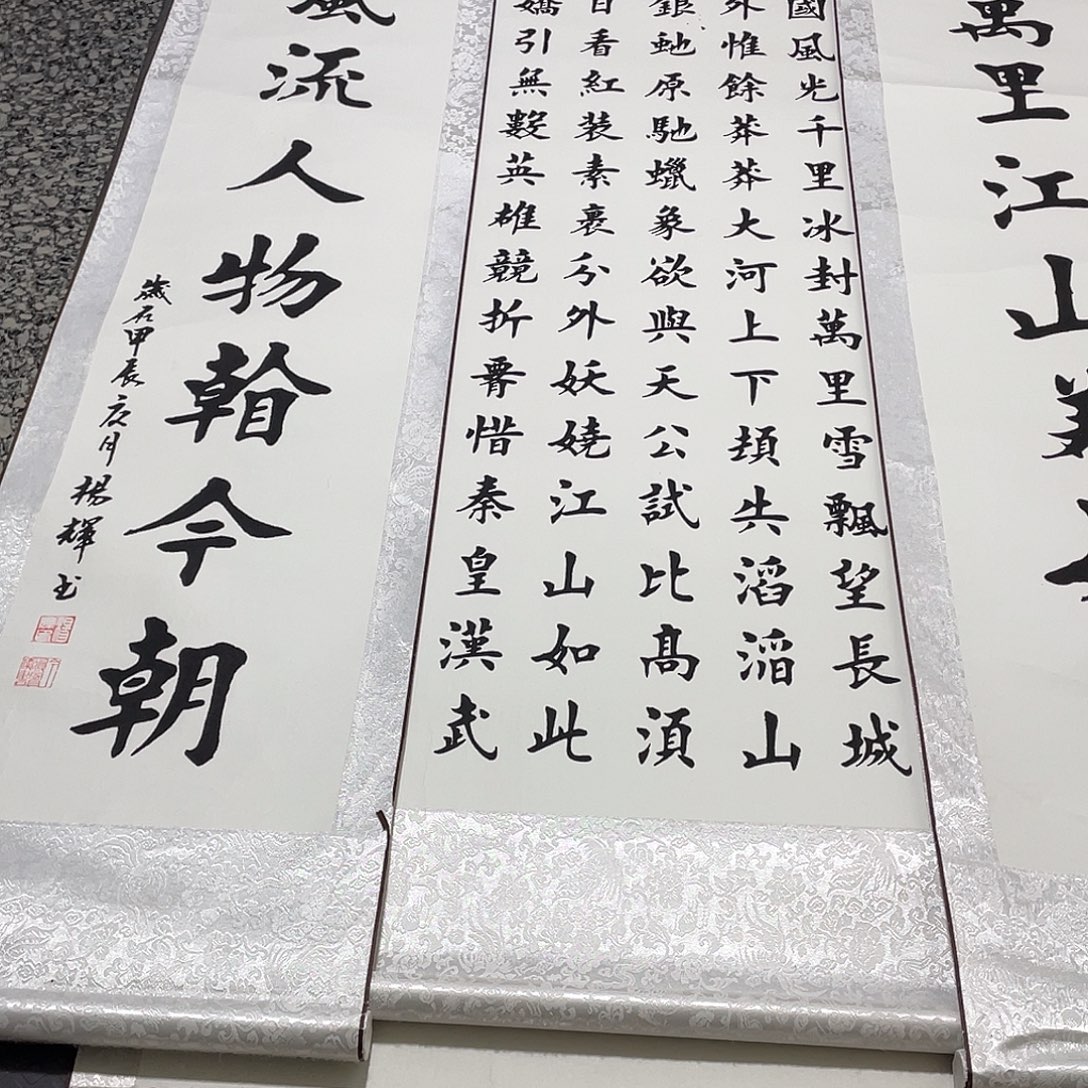 萬里江山
國風光千里冰封萬里雪飄望長城
外惟餘莽莽大河上下頓失滔滔山
銀虵原馳蠟象欲與天公試比髙須
日看紅装素裹分外妖嬈江山如此
嬌引無數英雄競折腰惜秦皇漢武
風流人物看今朝
歲在甲辰夏月楊輝书